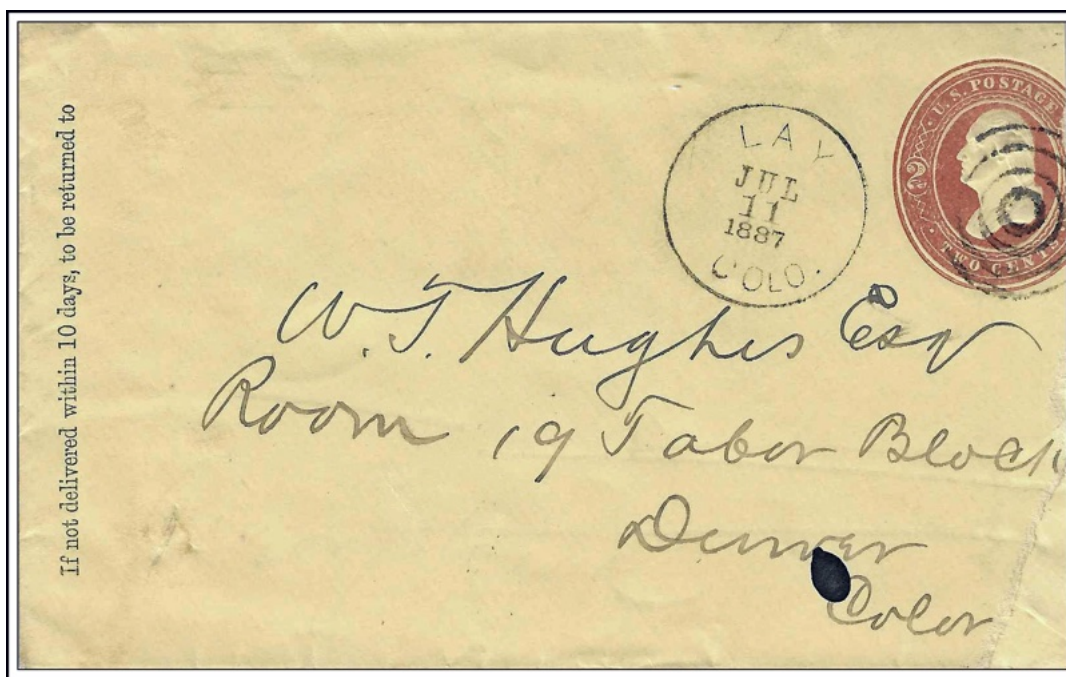 If not delivered within 10 days, to be returned to
LAY
JUL
11
1887
COLO.
U.S. POSTAGE
2
TWO CENTS
W. T. Hughes Esq
Room 19 Tabor Block
Denver
Color